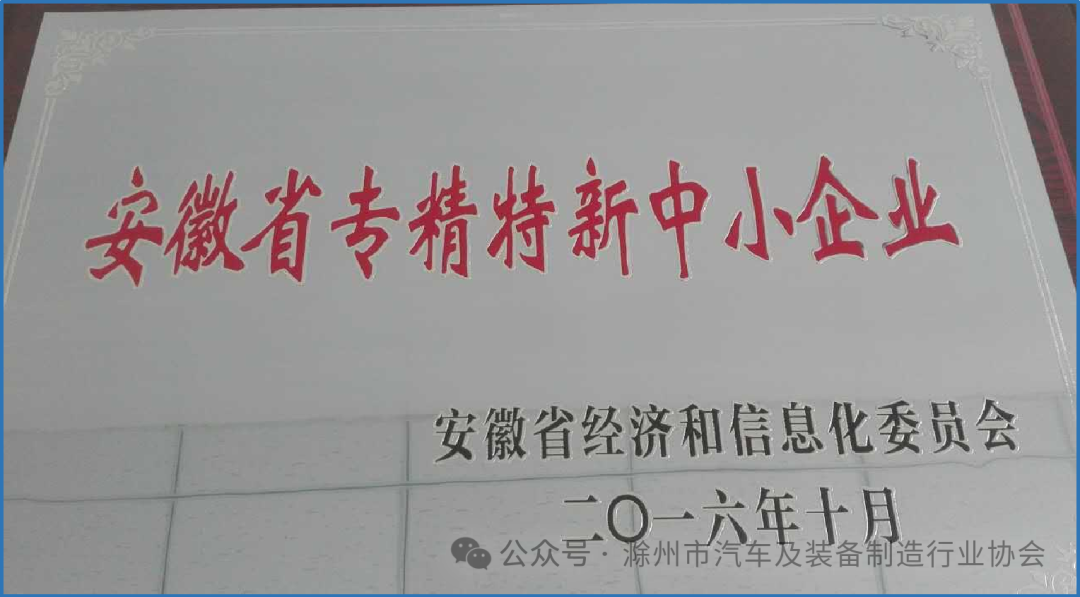 安徽省专精特新中小企业
安徽省经济和信息化委员会
二〇一六年十月
公众号·滁州市汽车及装备制造行业协会